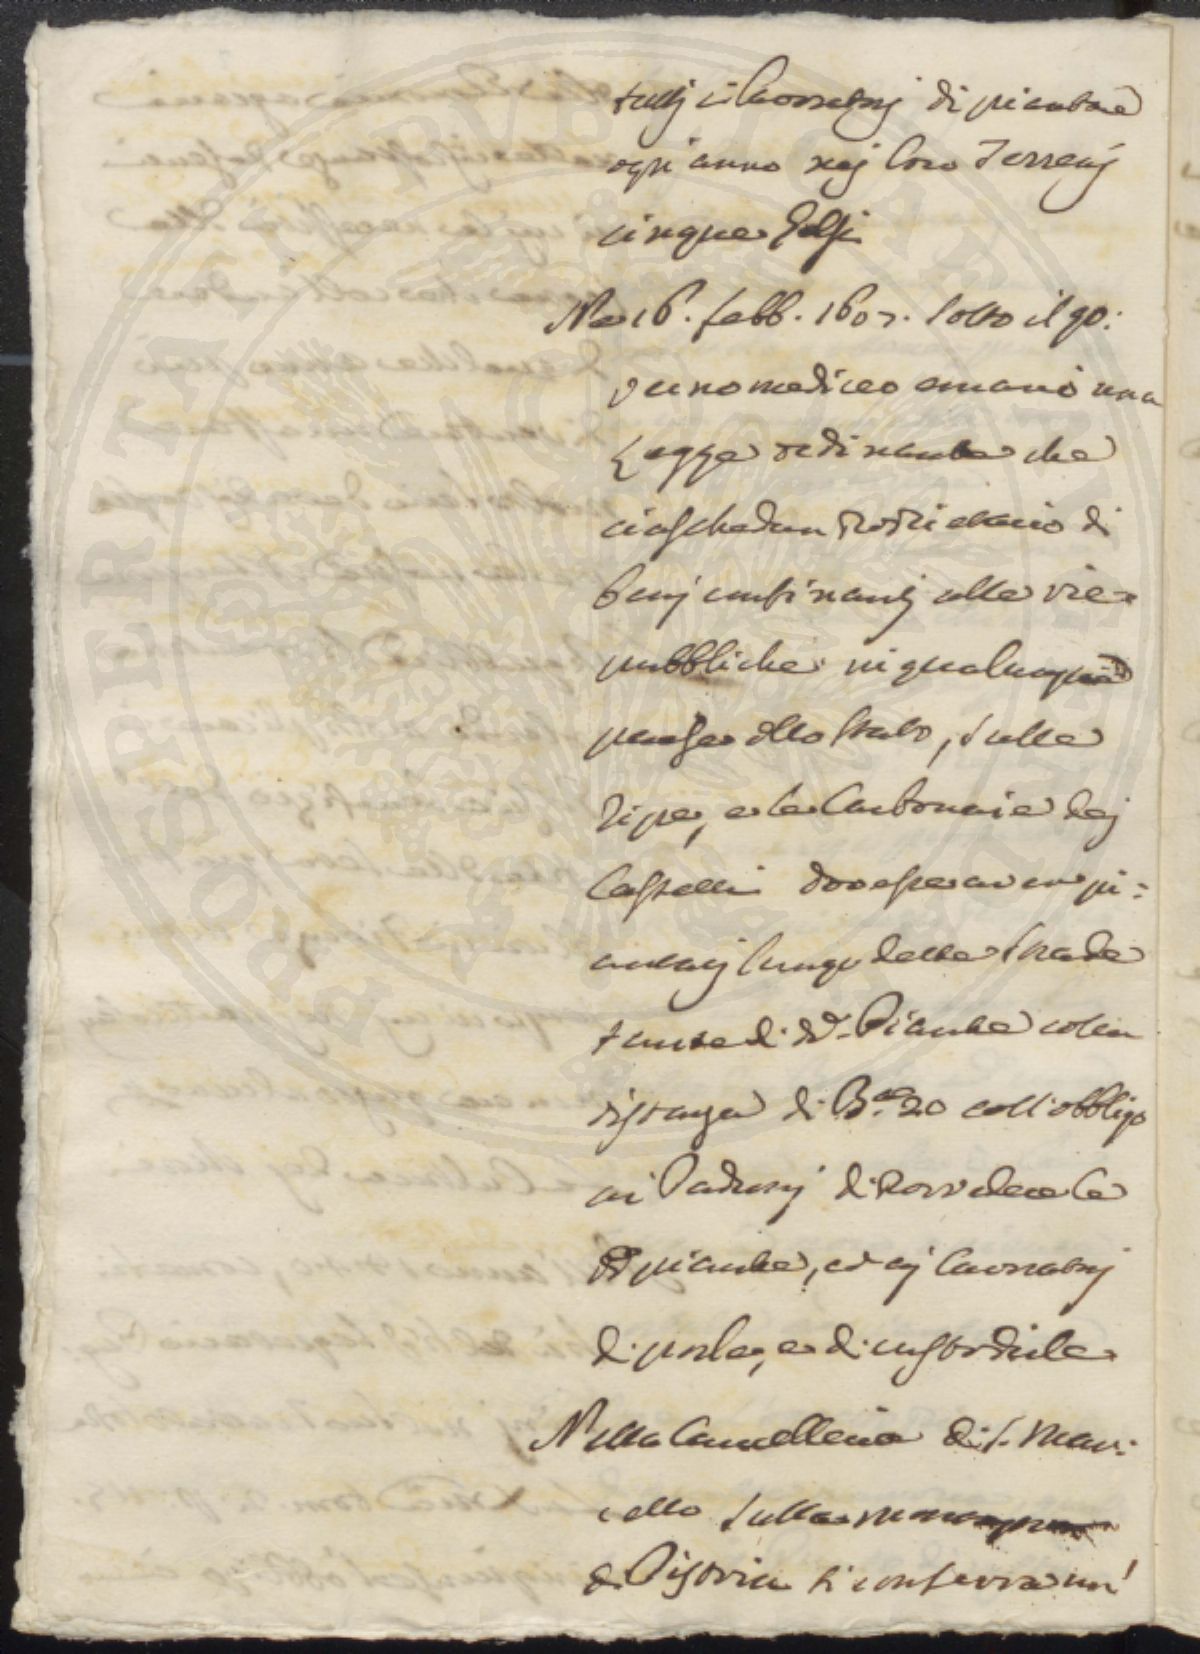 tutti i Lavoratorj di piantare
ogni anno nej loro Terrenj
cinque Gelsi
Ne 16. febb. 1607. sotto il go:
verno mediceo emanò una
Legge ordinante che
ciaschedun Proprietario di
benj confinantj alle vie
pubbliche in qualunque
paese dello Stato, sulle
Ripe, e le Carbonaie dej
Castelli dovesse aver pi:
antatj lungo dette strade
tante di dd. Piante colla
distanza di B.a 20 coll'obbligo
ai Padronj di provedere le
dd piante, ed aj Lavoratorj
di porle, e di custodirle
Nella Cancelleria di S. Mar:
cello sulla
di Pistoia si conserva un'
PROSPERITATI PUBLICAE AUGENDAE